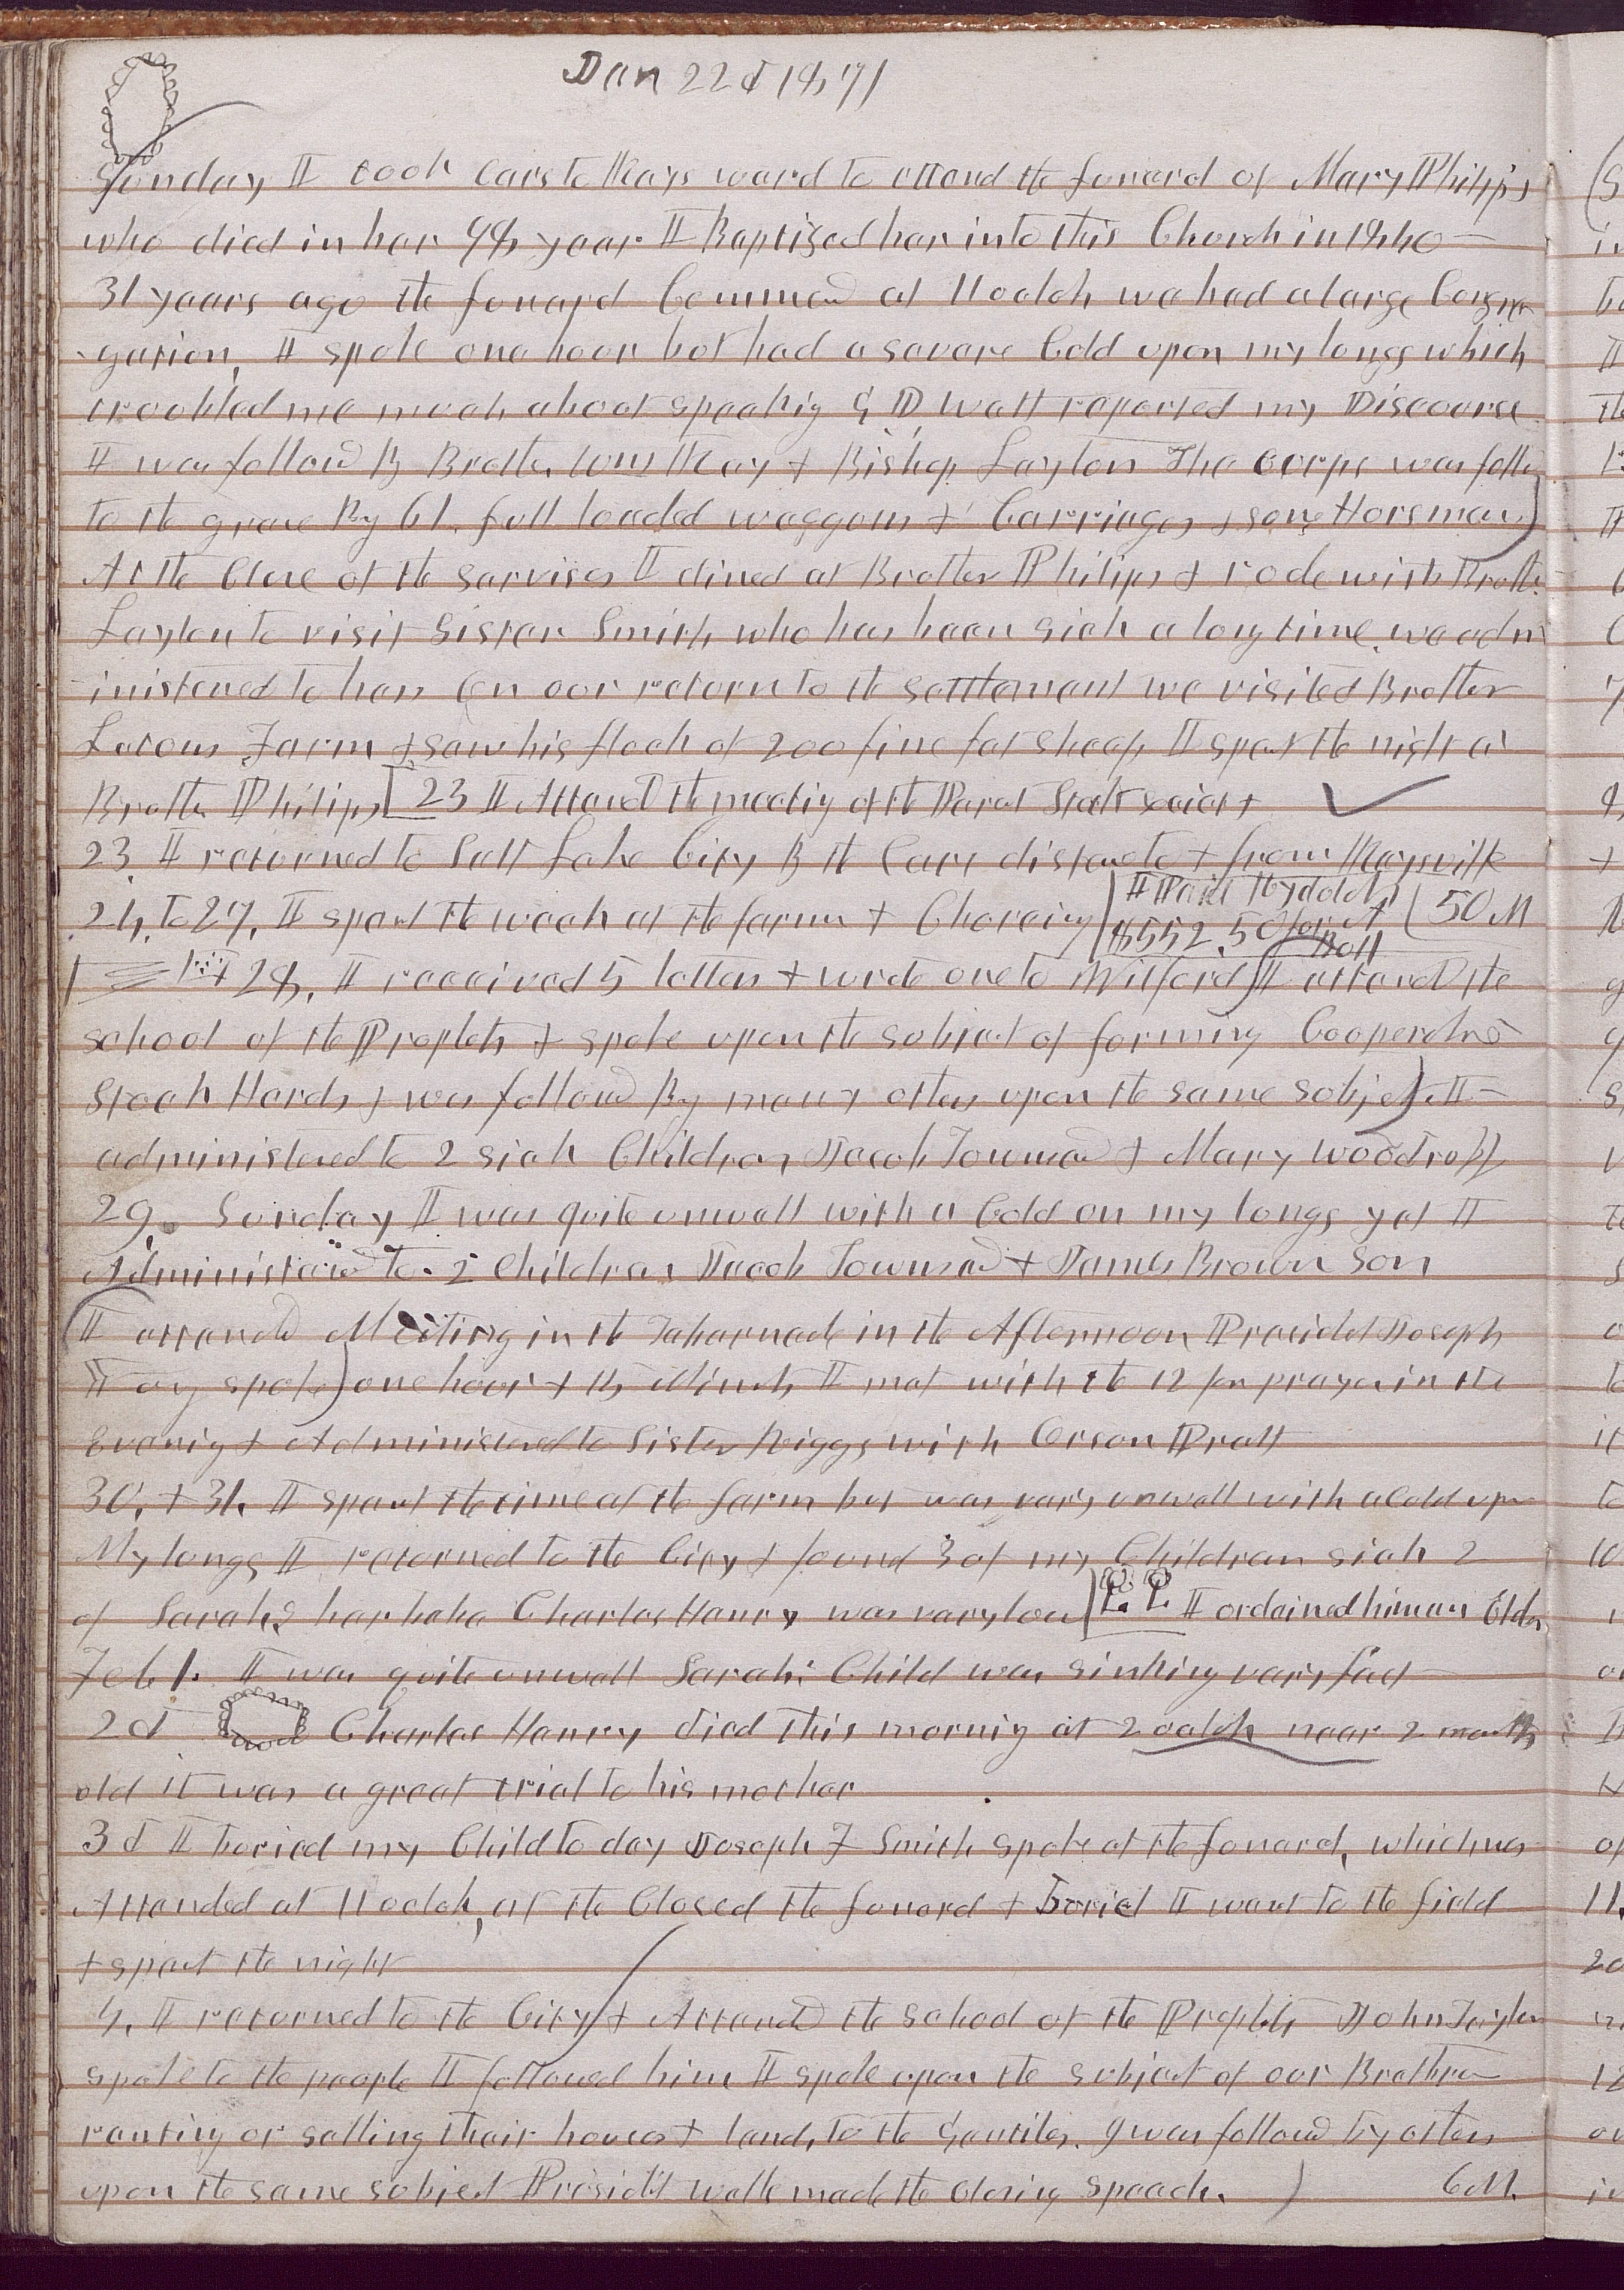 Jan 22d 1871
Sunday I took Cars to Kays ward to attend the funeral of Mary Philips
who died in her 98 year I Baptized her into this Church in 1840
31 years ago the funeral Commenced at 11 oclok we had a large Congre
gation, I spoke one hour but had a severe Cold upon my lungs which
troubled me much about speaking G D Watt reported my Discourse
I was followed By Brother Wm Kay & Bishop Layton The Corps was follow
to the grave By 61 full loaded waggons & Carriages & some Horsman
At the Close of the Services I dined at Brother Philips & rode with Brother
Layton to visit Sister Smith who has been sick a long time. we adm
inistered to her On our return to the settlement we visited Brother
Farm & saw his flock of 200 fine fat sheep I spent the night at
Brother Philips 23 I Attend the meeting of the Stock society
23. I returned to Salt Lake City By the Cars distance to & from Kaysville
50 M
24. to 27. I spent the week at the farm & Choreing I Paid
$552.50 for A Bull
& 28. I received 5 letters & wrote one to Wilford I attend the
school of the Prophets & spoke upon the subject of forming Cooperative
Stock Herds & was followed By many others upon the same subject. I
administered to 2 sick Children Jacob Townsend & Mary Woodruff
29. Sunday I was quite unwell with a Cold on my lungs yet I
Administered to 2 Children Jacob Townsend & James Brown Son
I attended Meeting in the Tabernacle in the Afternoon President Joseph
Young spoke one hour & 15 Minuts I met with the 12 for prayer in the
Evening & Administered to Sister Riggs with Orson Pratt
30. & 31. I spent the time at the farm but was very unwell with a Cold upon
My lungs I returned to the City & found 3 of my Children sick 2
of Sarah's her babe Charles Henry was very low I ordained him an Elder
Feb 1. I was quite unwell Sarahs Child was sinking very fast
2d Charles Henry died this morning at 2 oclok near 2 months
old it was a great trial to his mother
3d I buried my Child to day Joseph F Smith spoke at the funeral, which was
Attended at 11 oclok, at the Closed the funeral & buriel I went to the field
& spent the night
4. I returned to the City & Attend the school of the Prophets John Taylor
spoke to the people I followed him I spoke upon the subject of our Brethren
renting or selling their houses & lands to the Gentiles. I was followed by others
upon the same subject President Wells made the closing speech. 6 M.